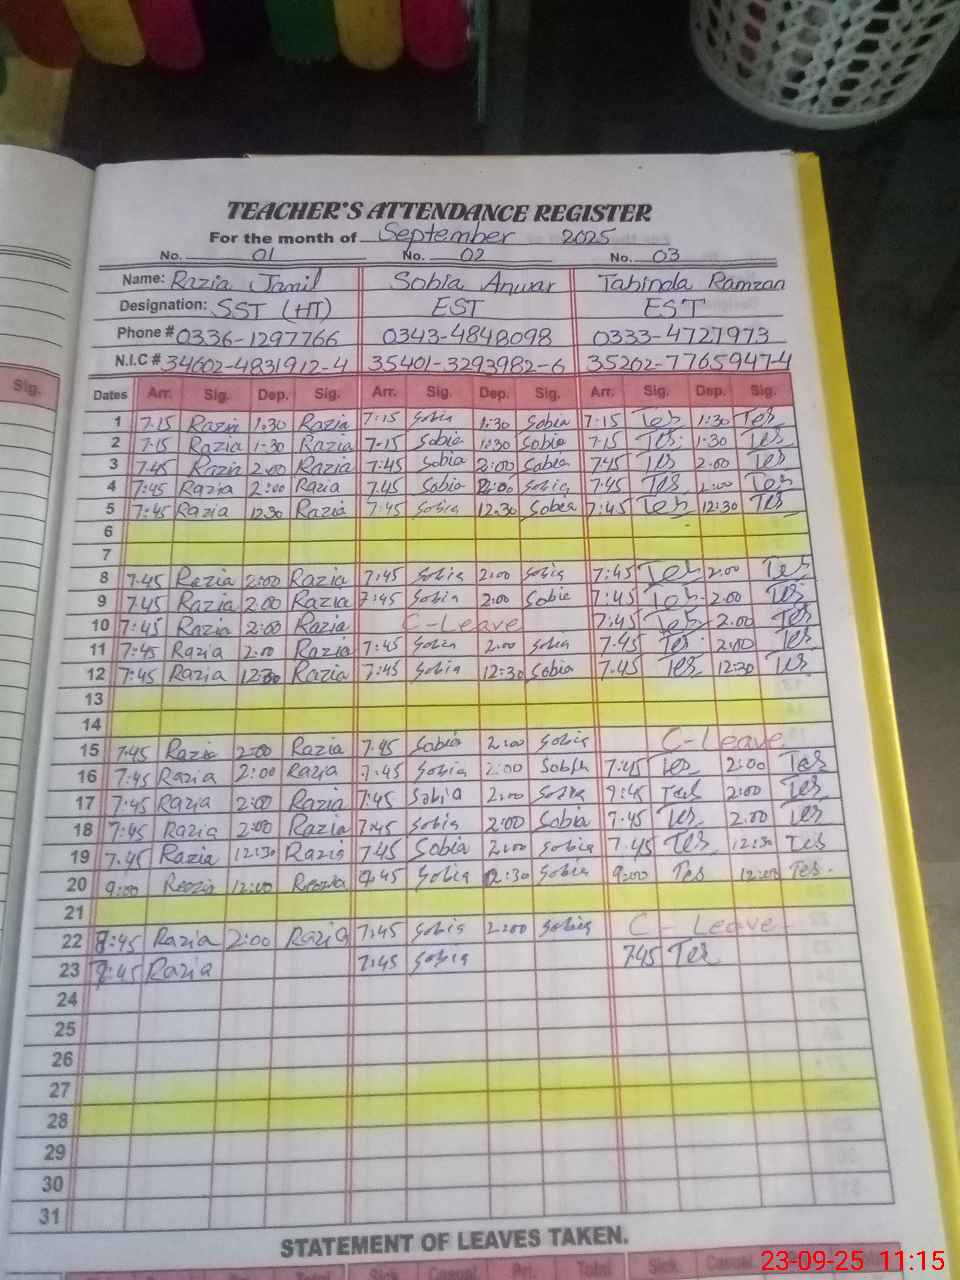 TEACHER'S ATTENDANCE REGISTER
For the month of September 2025
No. 01 No. 02 No. 03
Name: Razia Jamil Sobia Anwar Tabinda Ramzan
Designation: SST (HT) EST EST
Phone # 0336-1297766 0343-4848098 0333-4727973
N.I.C # 34602-4831912-4 35401-3293982-6 35202-7765947-4
Sig.
Dates Arr. Sig. Dep. Sig. Arr. Sig. Dep. Sig. Arr. Sig. Dep. Sig.
1 7:15 Razia 1:30 Razia 7:15 Sobia 1:30 Sobia 7:15 Tes 1:30 Tes
2 7:15 Razia 1:30 Razia 7:15 Sobia 1:30 Sobia 7:15 Tes 1:30 Tes
3 7:45 Razia 2:00 Razia 7:45 Sobia 2:00 Sobia 7:45 Tes 2:00 Tes
4 7:45 Razia 2:00 Razia 7:45 Sobia 2:00 Sobia 7:45 Tes 2:00 Tes
5 7:45 Razia 12:30 Razia 7:45 Sobia 12:30 Sobia 7:45 Tes 12:30 Tes
6
7
8 7:45 Razia 2:00 Razia 7:45 Sobia 2:00 Sobia 7:45 Tes 2:00 Tes
9 7:45 Razia 2:00 Razia 7:45 Sobia 2:00 Sobia 7:45 Tes 2:00 Tes
10 7:45 Razia 2:00 Razia C-Leave 7:45 Tes 2:00 Tes
11 7:45 Razia 2:00 Razia 7:45 Sobia 2:00 Sobia 7:45 Tes 2:00 Tes
12 7:45 Razia 12:30 Razia 7:45 Sobia 12:30 Sobia 7:45 Tes 12:30 Tes
13
14
15 7:45 Razia 2:00 Razia 7:45 Sobia 2:00 Sobia C-Leave
16 7:45 Razia 2:00 Razia 7:45 Sobia 2:00 Sobia 7:45 Tes 2:00 Tes
17 7:45 Razia 2:00 Razia 7:45 Sobia 2:00 Sobia 9:45 Tes 2:00 Tes
18 7:45 Razia 2:00 Razia 7:45 Sobia 2:00 Sobia 7:45 Tes 2:00 Tes
19 7:45 Razia 12:30 Razia 7:45 Sobia 2:00 Sobia 7:45 Tes 12:30 Tes
20 9:00 Razia 12:00 Razia 9:45 Sobia 12:30 Sobia 9:00 Tes 12:00 Tes
21
22 7:45 Razia 2:00 Razia 7:45 Sobia 2:00 Sobia C-Leave
23 7:45 Razia 7:45 Sobia 7:45 Tes
24
25
26
27
28
29
30
31
STATEMENT OF LEAVES TAKEN.
Total Sick Casual Pri. Total Sick Casual
23-09-25 11:15